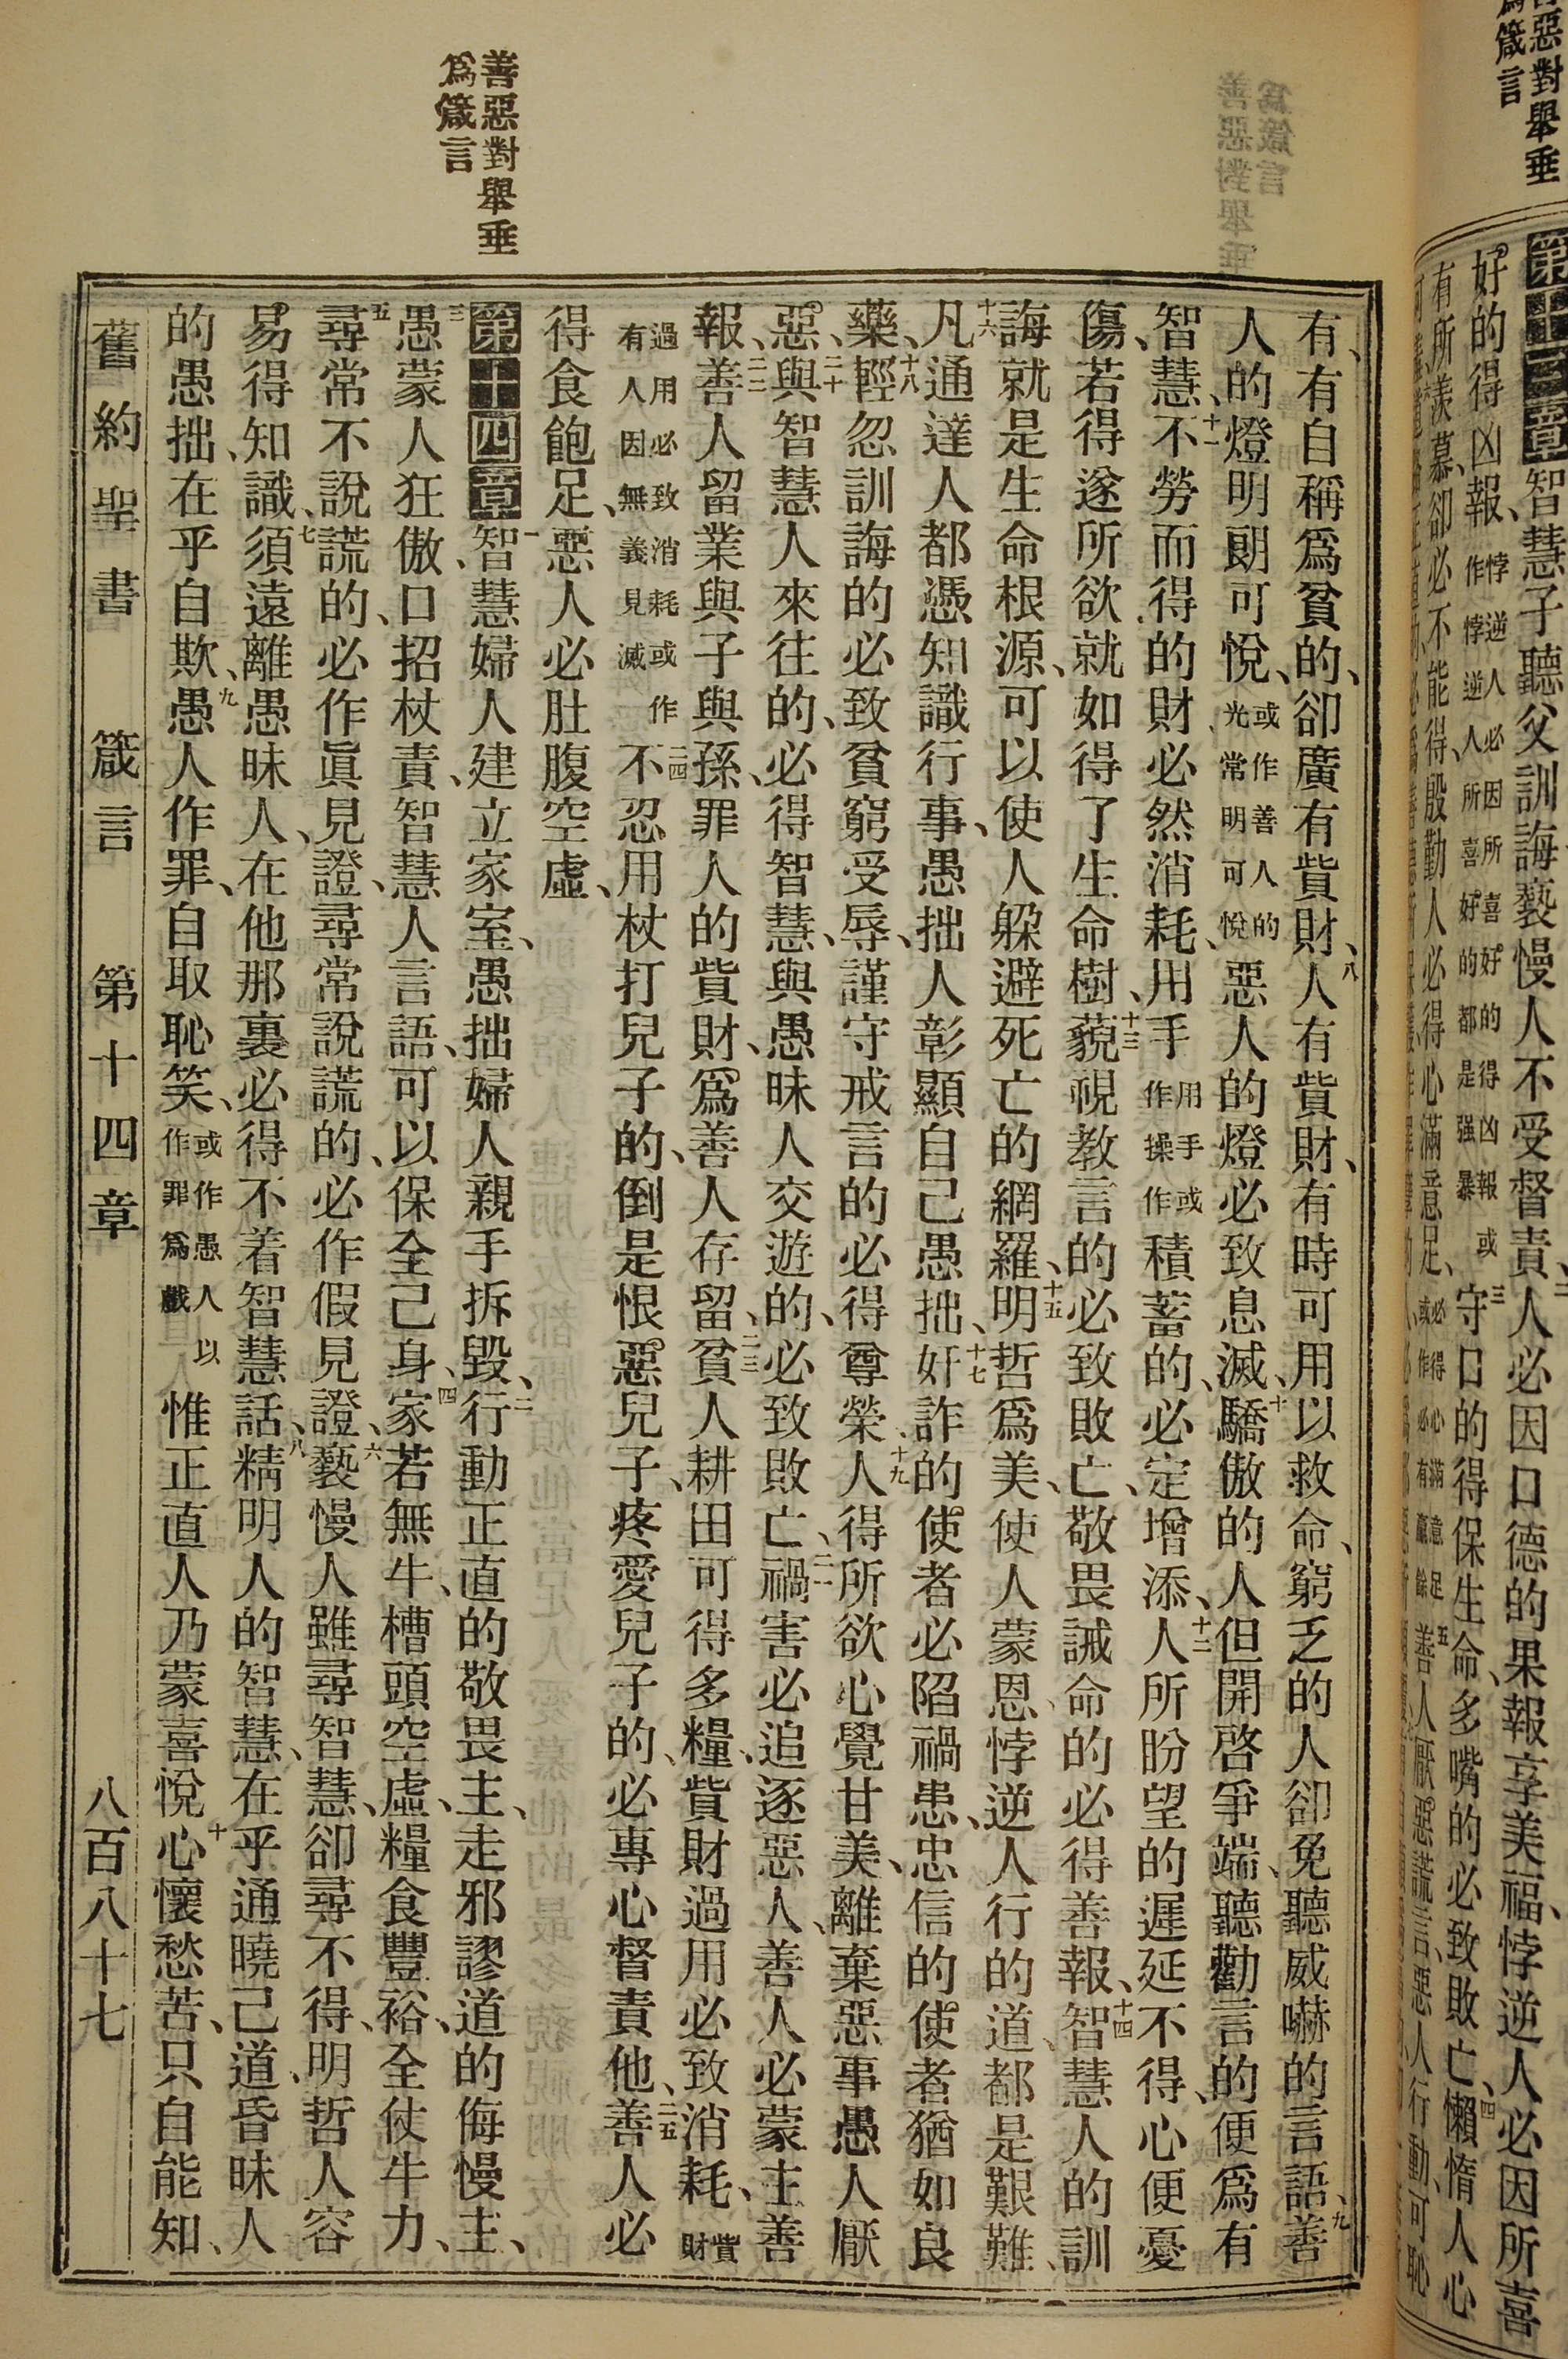 善惡對舉垂
爲箴言
第十三章智慧子聽父訓誨褻慢人不受督責、二人必因口德的果報享美福、悖逆人必因所喜
好的得凶報、悖逆人必因所喜好的得凶報或作悖逆人所喜好的都是强暴三守口的得保生命、多嘴的必致敗亡、四懶惰人心
有所羨慕、卻必不能得、殷勤人必得心滿意足、必得心滿意足或作必有贏餘五善人厭惡謊言、惡人行動、可恥
善惡對舉垂
爲箴言
有、有自稱爲貧的、卻廣有貲財、八人有貲財、有時可用以救命、窮乏的人卻免聽威嚇的言語、九善
人的燈明朗可悅、或作善人的光常明可悅惡人的燈必致息滅、十驕傲的人但開啓爭端、聽勸言的便爲有
智慧、十一不勞而得的財、必然消耗、用手用手或作操作積蓄的、必定增添、十二人所盼望的遲延不得、心便憂
傷、若得遂所欲、就如得了生命樹、十三藐視教言的必致敗亡、敬畏誡命的必得善報、十四智慧人的訓
誨就是生命根源、可以使人躲避死亡的網羅、十五明哲爲美、使人蒙恩、悖逆人行的道、都是艱難、
十六凡通達人都憑知識行事、愚拙人彰顯自己愚拙、十七奸詐的使者必陷禍患、忠信的使者猶如良
藥、十八輕忽訓誨的必致貧窮受辱、謹守戒言的必得尊榮、十九人得所欲心覺甘美、離棄惡事愚人厭
惡、二十與智慧人來往的、必得智慧、與愚昧人交遊的、必致敗亡、二一禍害必追逐惡人、善人必蒙主善
報、二二善人留業與子與孫、罪人的貲財、爲善人存留、二三貧人耕田可得多糧、貲財過用必致消耗、貲財
過用必致消耗或作有人因無義見滅二四不忍用杖打兒子的、倒是恨惡兒子、疼愛兒子的、必專心督責他、二五善人必
得食飽足、惡人必肚腹空虛、
第十四章一智慧婦人建立家室、愚拙婦人親手拆毀、二行動正直的敬畏主、走邪謬道的侮慢主、
三愚蒙人狂傲、口招杖責、智慧人言語、可以保全己身、四家若無牛、槽頭空虛、糧食豐裕、全仗牛力、
五尋常不說謊的、必作眞見證、尋常說謊的、必作假見證、六褻慢人雖尋智慧、卻尋不得、明哲人容
易得知識、七須遠離愚昧人、在他那裏必得不着智慧話、八精明人的智慧、在乎通曉己道、昏昧人
的愚拙、在乎自欺、九愚人作罪、自取恥笑、或作愚人以作罪爲戲惟正直人乃蒙喜悅、十心懷愁苦、只自能知、
舊約聖書 箴言 第十四章 八百八十七